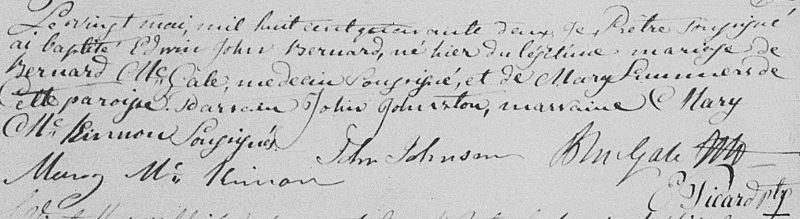 Le vingt mai, mil huit cent quarante deux, Je Prêtre soussigné
ai baptisé Edwin John Bernard, né hier du légitime mariage de
Bernard McGale, medecin soussigné, et de Mary Summers de
cette paroisse. Parrain John Johnston, marraine Mary
McKinnon soussignés.
John Johnson BMcGale MD
Mary McKinnon
E Picard ptr